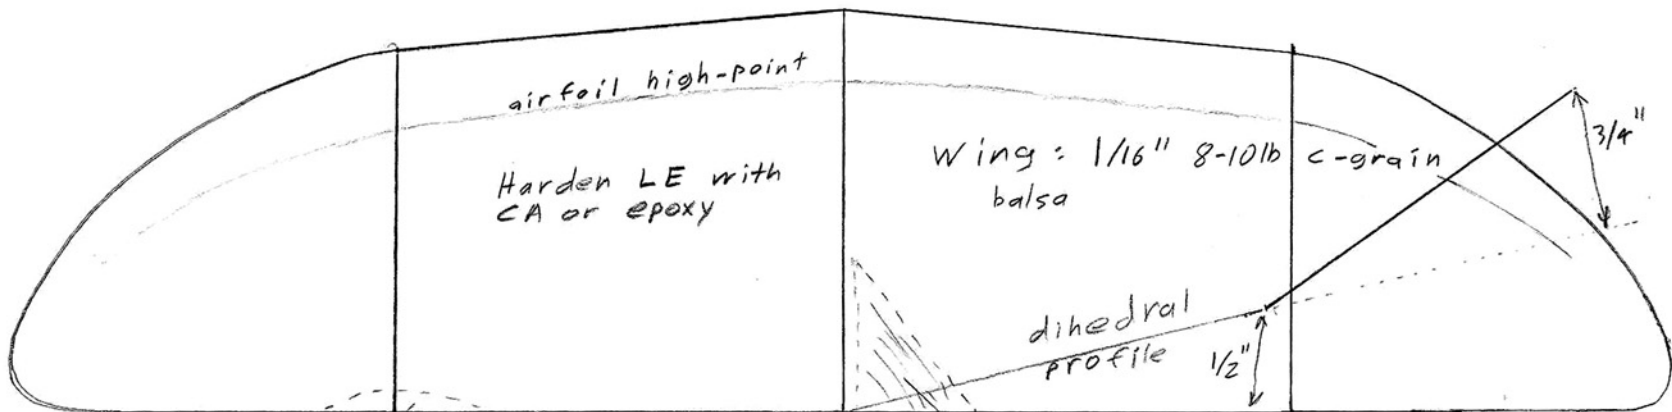 airfoil high-point
Harden LE with
CA or epoxy
Wing: 1/16" 8-10lb c-grain
balsa
3/4"
dihedral
profile
1/2"